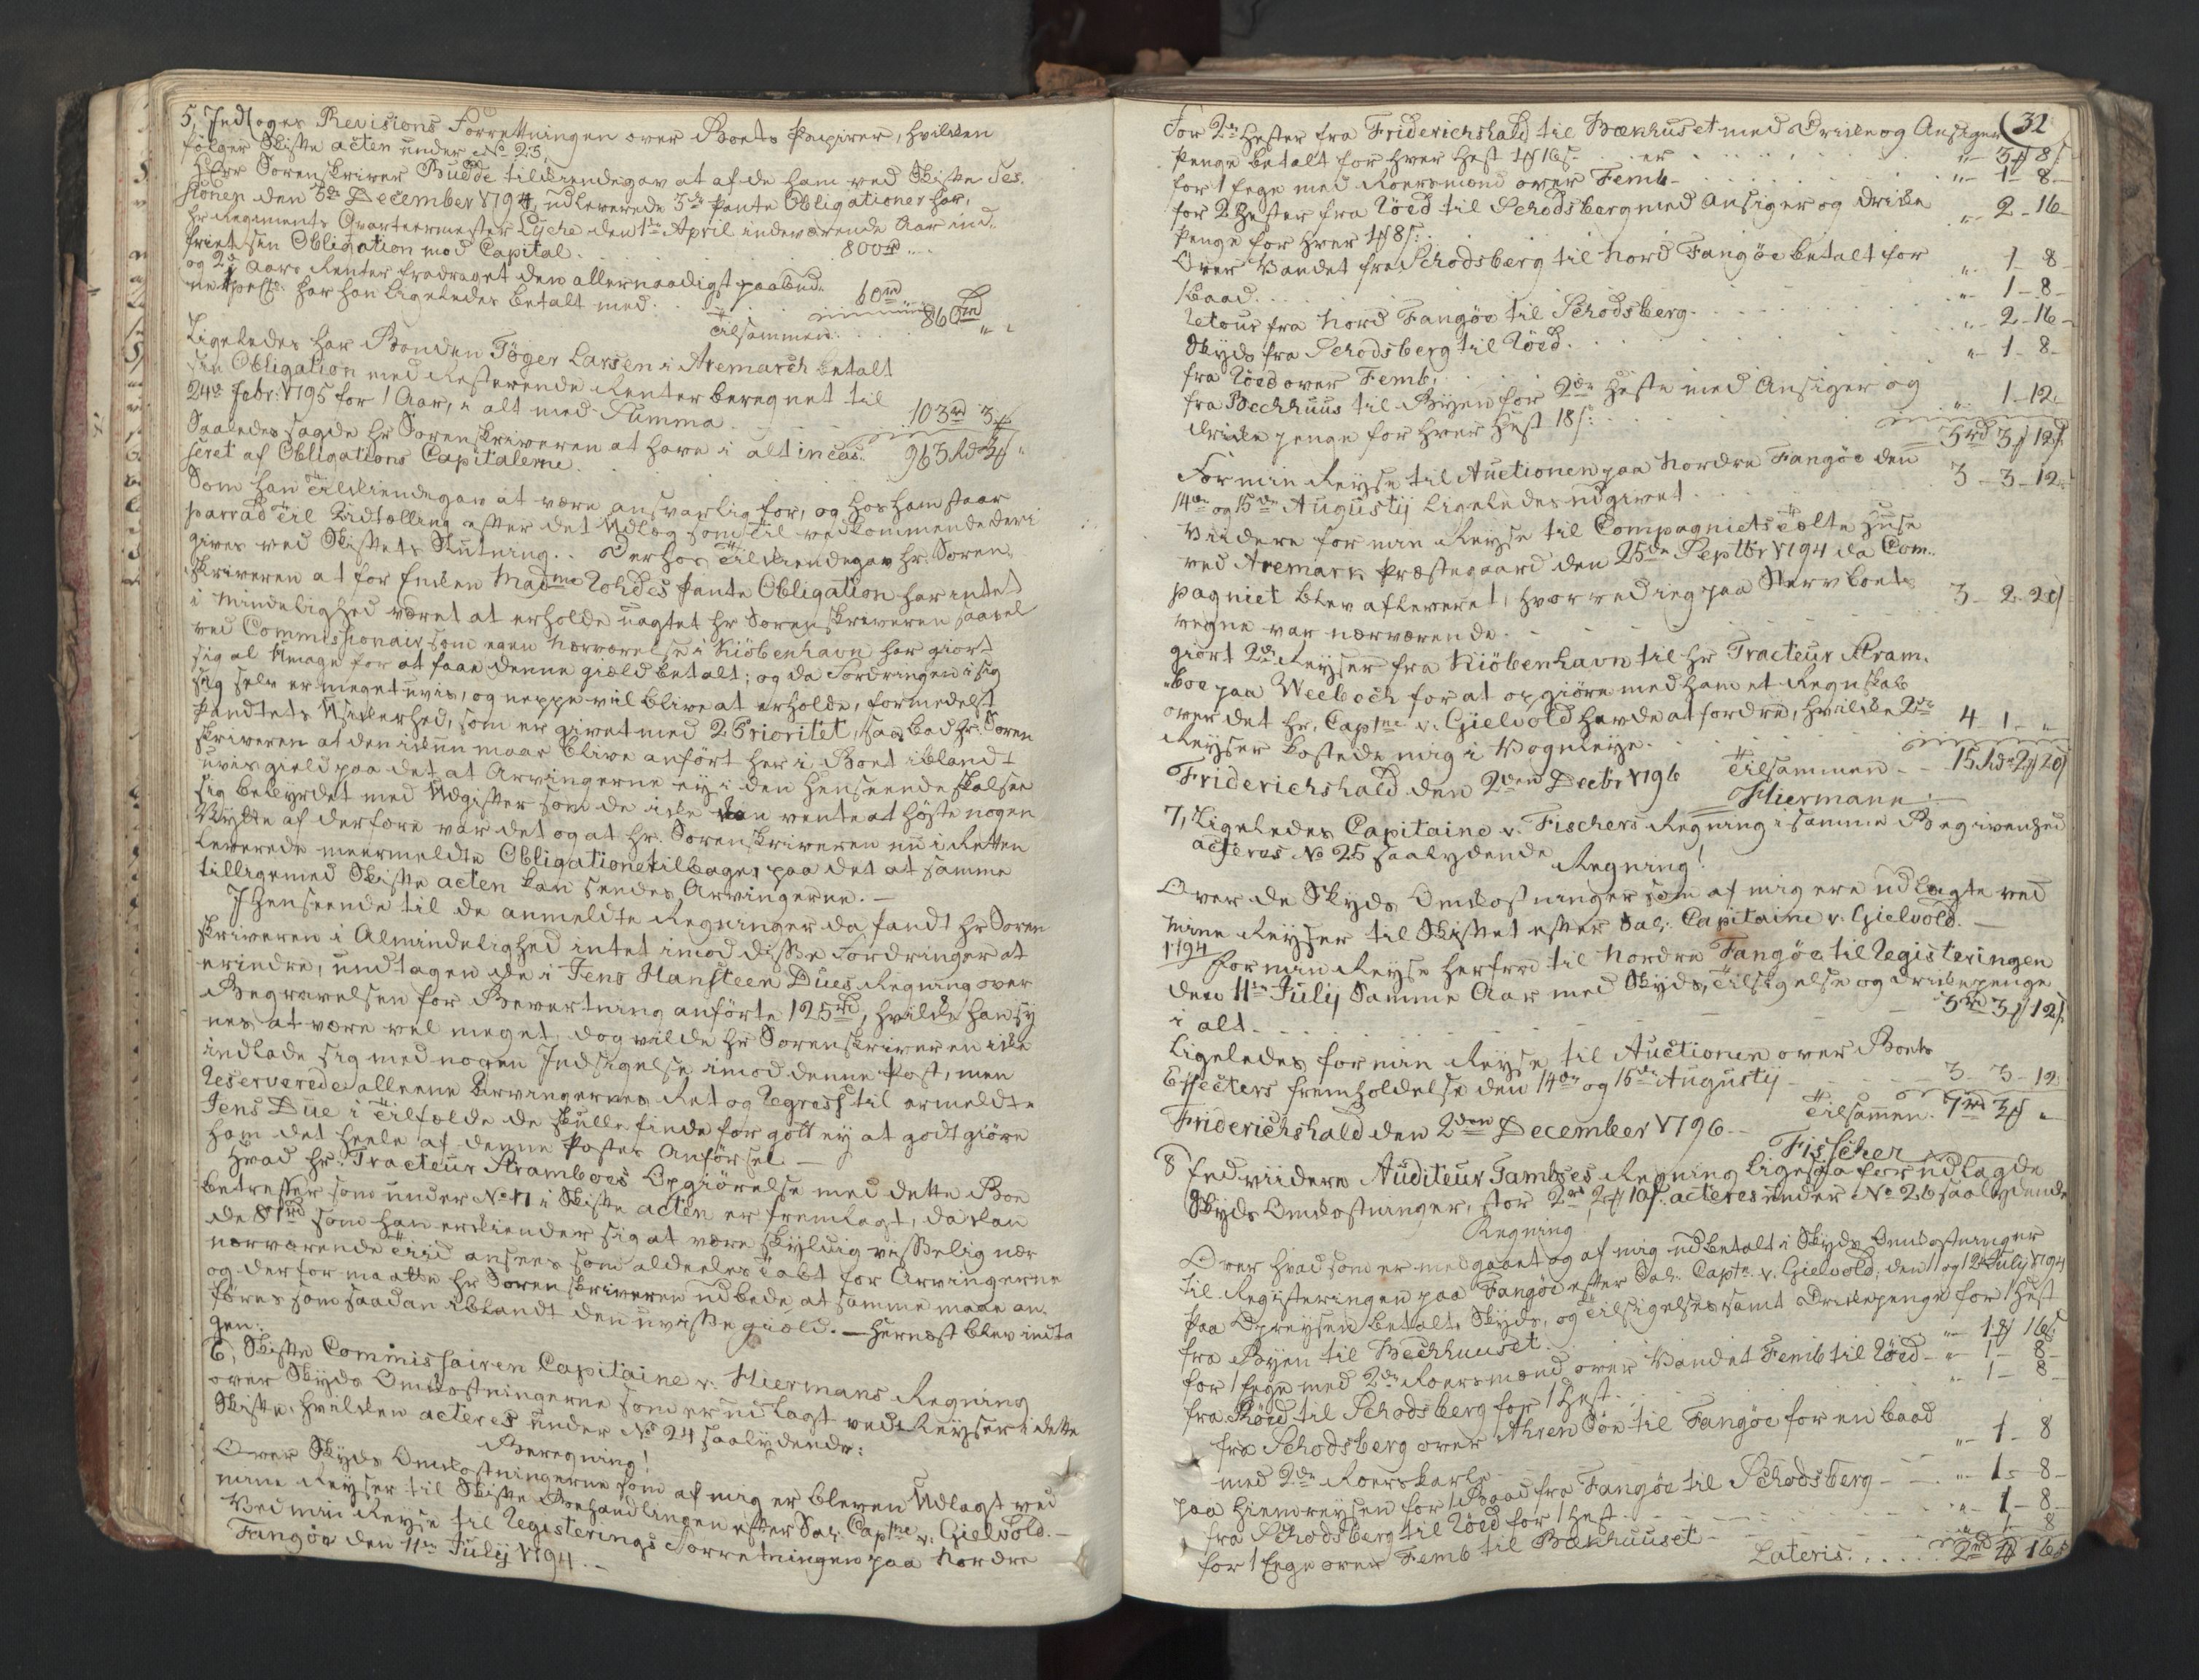 5, Indtoges Revisions Forrettningen over Boets Papirer, hvilken
følger Skifte acten under No 23,
Herr Sorenskriver Budde tilkiendegav at af de ham ved Skifte Ses,
sionen den 3de December 1794, udleverede 3de Pante Obligationer har,
Hr Regiments Qvarteermester Lyche den 1te April indeværende Aar ind,,
friet sin Obligation med Capital . . . 800rd ,,
og 2de Aars Renter fradraget den allernaadigst paabud,,
ne 4 pCt: har han ligeledes betalt med . . 60rd
Tilsammen . . . 860rd ,, ,,
Ligeledes har Bonden Töger Larsen i Aremarch betalt
sin Obligation med Resterende Renter beregnet til
24de Febr: 1795 for 1 Aar, i alt med Summa . . . 103rd 3ß
Saaledes sagde Hr Sorenskriveren at have i alt incas,,
seret af Obligations Capitalerne . . . 963 Rd 3ß ,,
Som han tilkiendegav at være ansvarlig for, og hos ham staar
parrad til Udtælling efter det Udlæg som til vedkommende deri
gives ved Skiftets Slutning. . Derhos tilkiendegav Hr. Soren,
skriveren at for Enken Madme Rohdes Pante Obligation har intet
i Mindelighed været at erholde uagtet Hr Sorenskriveren saavel
ved Commissionair som egen Nærværelse i Kiöbenhavn har giort
sig al Umage for at faae denne giæld betalt; og da Fordringen i sig
sig selv er meget uvis, og neppe vil blive at erholde, formedelst
Pandtets Usikerhed, som er givet med 2 Prioritet, saa bad Hr. Soren
skriveren at den ickun maae blive anført her i Boet iblandt
uvis gield paa det at Arvingerne ey i den Henseende skal see
sig bebyrdet med Udgifter som de icke kan vente at høste nogen
Nytte af derfore var det og at Hr. Sorenskriveren nu i Retten
leverede meermeldte Obligation tilbage, paa det at samme
tilligemed Skifte acten kan sendes Arvingerne. —
I Henseende til de anmeldte Regninger da fandt Hr Soren
skriveren i Almindelighed intet imod disse Fordringer at
erindre, undtagen de i Jens Hansteen Dües Regning over
Begravelsen for Bevertning anførte 125rd, hvilke han sy
nes at være vel meget, dog vilde Hr Sorenskriveren icke
indlade sig med nogen Indsigelse imod denne Post, men
Reserverede alleene Arvingernes Ret og Regress til ermeldte
Jens Due i Tilfælde de skulle finde for gött ey at godtgiöre
ham det heele af denne Postes Anförsel. —
Hvad Hr: Tracteur Stramboes Opgiörelse med dette Boe
betreffer som under No 11 i Skifte acten er fremlagt, da kan
de 81rd som han erkiender sig at være skyldig visselig nær
nærværende Tiid ansees som aldeeles tabt for Arvingerne
og derfor maatte Hr Sorenskriveren udbede at samme maae an,
føres som saadan iblandt den uvisse giæld. — Hernæst blev indta
gen:
6, Skifte Commissairen Capitaine v. Hiermans Regning
over Skyds Omkostningerne som er udlagt ved Reyser i dette
Skifte, hvilken acteres under No 24 saalydende:
Beregning!
Over Skyds Omkostningerne som af mig er bleven Udlagt ved
mine Reyser til Skifte Behandlingen efter Sal. Captne v. Gielvold. —
Ved min Reyse til Registerings Forretningen paa Nordre
Fangöe den 11te Julij 1794. —
32
For 2de Hester fra Friderichshald til Bækhuset med Drike og Ansiger
Penge betalt for hver Hest 1ß 16s . . er . . . ,, 3ß 8s
for 1 Fege med Roersmænd over Femb . . . ,, 1 8
for 2 Hester fra Röed til Schodsberg med Ansiger og Drike
Penge for hver 1ß 8s: . . . ,, 2 16
Over Vandet fra Schodsberg til Nord Fangöe betalt for
1 baad . . . ,, 1 8
Retour fra Nord Fangöe til Schodsberg . . . ,, 1 8
Skyds fra Schodsberg til Röed . . . ,, 2 16
fra Röed over Femb, . . . ,, 1 8
fra Bechhuus til Byen for 2de Heste med Ansiger og
Drike penge for hver Hest 18s: . . . ,, 1 12
5rd 3ß 12s
For min Reyse til Auctionen paa Nordre Fangöe den
14de og 15de Augustij ligeledes udgivet . . . 3 3 12
Viidere for min Reyse til Compagniets Tælte Huse
ved Aremark Præstegaard den 25de Septbr 1794 da Com,,
pagniet blev afleveret, hvorved ieg paa Stervboets
vegne var nærværende . . . 3 2 20
giort 2de Reyser fra Kiöbenhavn til Hr Tracteur Stram,
boe paa Weeboch for at opgiöre med ham et Regnskab
over det Hr. Captne v. Gielvold havde at fordre, hvilcke 2de
Reyser kostede mig i Vognleye . . . 4 1 ,,
Friderichshald den 2den Decbr 1796 Tilsammen . . 15 Rd 2ß 20s
Hiermann
7, Ligeledes Capitaine v. Fischers Regning i samme Begivenhed
acteres No 25 saalydende
Regning!
Over de Skyds Omkostninger som af mig ere udlagte ved
mine Reyser til Skiftet efter Sal: Capitaine v. Gielvold. —
1794
for min Reyse herfra til Nordre Fangöe til Registeringen
den 11te Julij samme Aar med Skyds, Tilsigelse og Drikepenge
i alt . . . 3rd 3ß 12s
Ligeledes for min Reyse til Auctionen over Boets
Effecters fremholdelse den 14de og 15de Augustij . . . 3 3 12
Friderichshald den 2den December 1796 Tilsammen. 7rd 3ß ,,
Fisscher
8 Endviidere Auditeur Tambses Regning ligesaa for udlagde
Skyds Omkostninger, stor 2rd 2ß 10s. acteres under No 26 saalydende
Regning!
Over hvad som er medgaaet og af mig udbetalt i Skyds Omkostninger
til Registeringen paa Fangöe efter Sal: Captn v. Gielvold, den 11 og 12te Julij 1794
Paa Opreysen betalt, Skyds, og Tilsigelse samt Drikepenge for 1 Hest
fra Byen til Bechhuuset . . . ,, 1ß 16s
for 1 Fege med 2de Roersmænd over Vandet Femb til Röed . . ,, 1 8
fra Röed til Schodsberg for 1 Hest . . . ,, 1 8
fra Schodsberg over Ahren Söe til Fangöe for en baad
med 2de Roerskarle . . . ,, 1 8
paa Hiemreysen for 1 Baad fra Fangöe til Schodsberg . . . ,, 1 8
fra Schodsberg til Röed for 1 Hest . . . ,, 1 8
for 1 Fege over Femb til Bækhuuset . . . ,, 1 8
Lateris . . . 2rd 16s